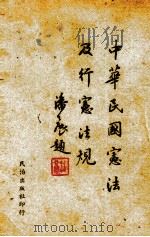 中華民國憲法
及行憲法規
潘公展題
民治出版社印行